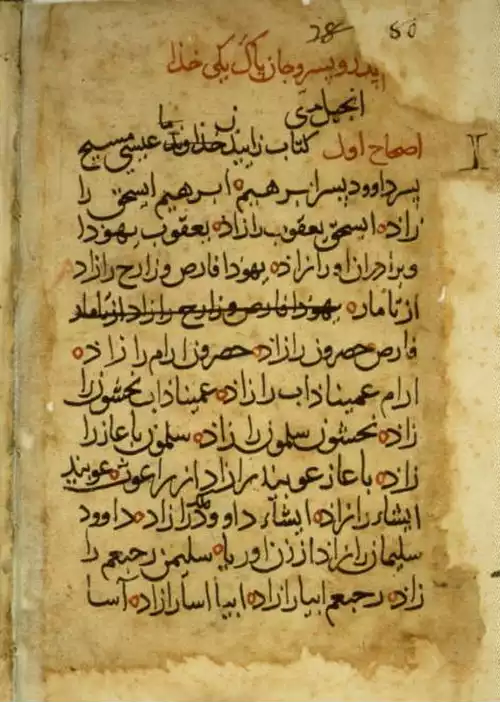 28 50
پدر و پسر و جان پاک یکی خدا
انجیل متی
اصحاح اول کتاب زایید خداوند ما عیسی مسیح
پسر داوود پسر ابرهیم ابرهیم اسحق را
زاد اسحق یعقوب را زاد یعقوب یهودا
و برادران او را زاد یهودا فارص و زارح را زاد
از تامار یهودا فارص و زارح را زاد از تامار
فارص حصرون را زاد حصرون ارام را زاد
ارام عمیناداب را زاد عمیناداب نحشون را
زاد نحشون سلمون را زاد سلمون باعاز را
زاد باعاز عوبید را زاد از راعوث عوبید
ایشاء را زاد ایشاء داوود ملک را زاد داوود
سلیمان را زاد از زن اوریا سلیمن رحبعم را
زاد رحبعم ابیا را زاد ابیا آسا را زاد آسا